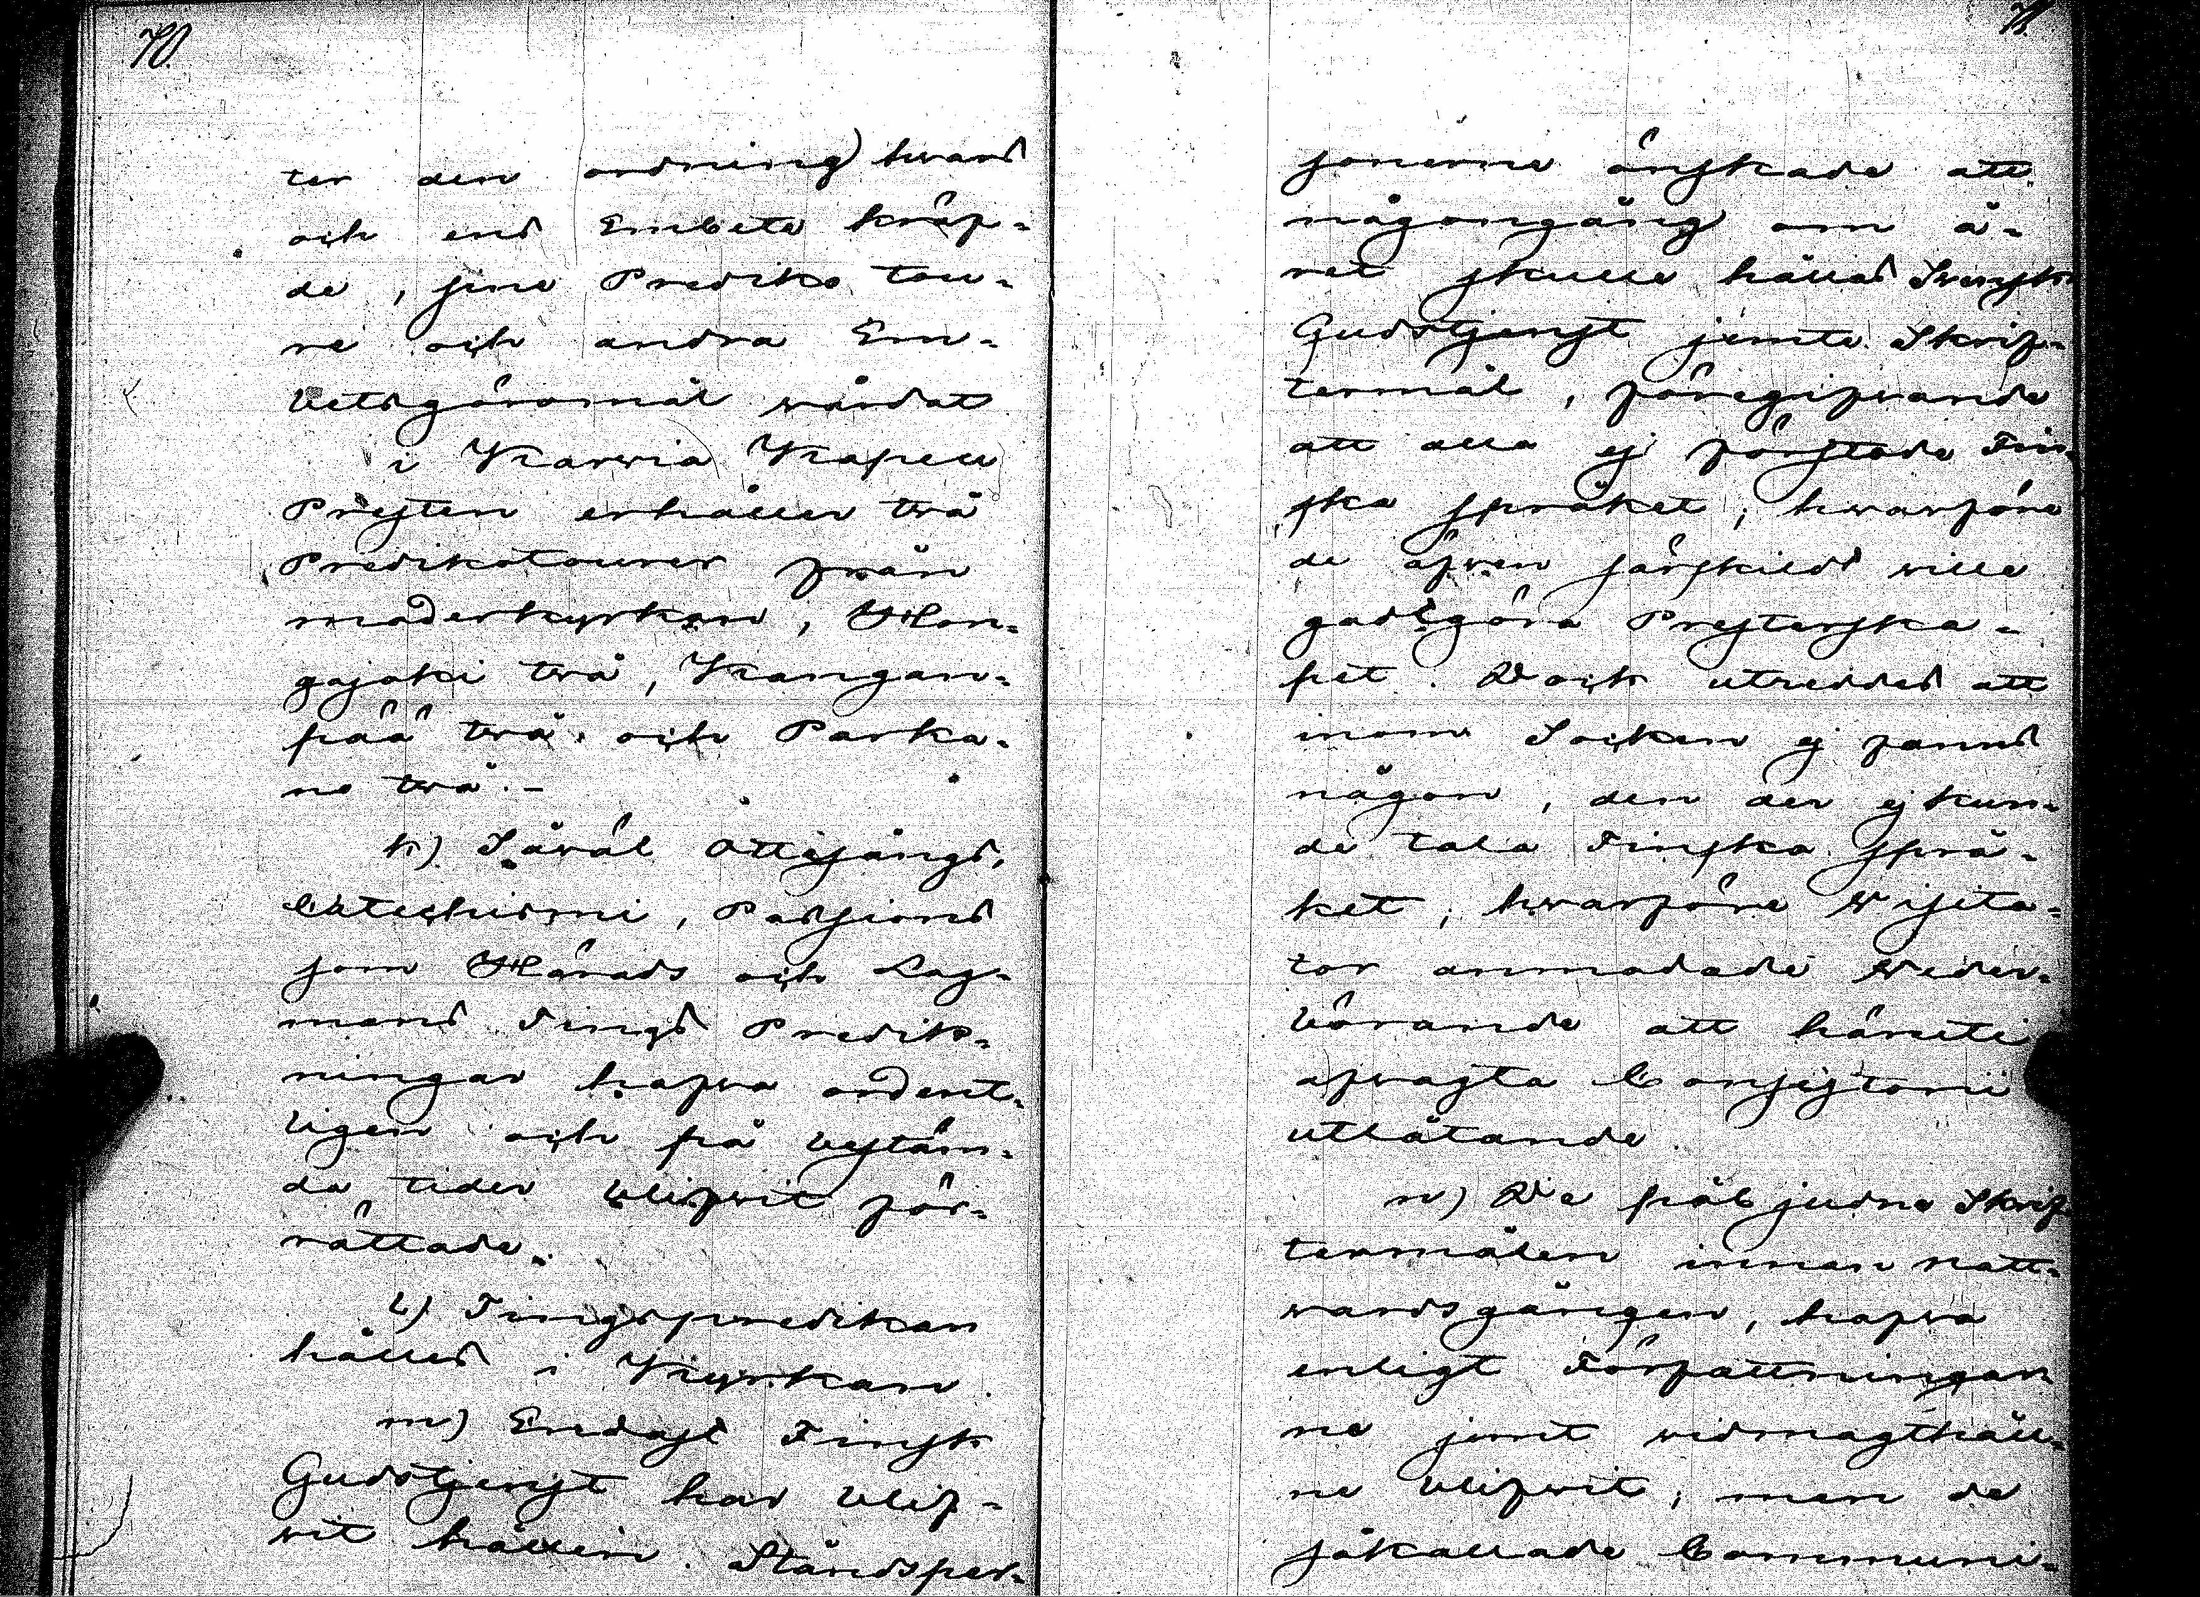 70.
ter den ordning hvars
och ens Embete kräf-
de, sine Prediko tou-
re och andra Em-
betsgöromål vårdat
i Karvia Kapell
Presten erhåller två
Predikotourer från
moderkyrkan, Hon-
gajoki två, Kangan-
pää två och Parka-
no två.-
k) Såväl Ottesångs,
Catechismi, Passions
som Härads och Lag-
mans Tings Predik-
ningar hafva ordent-
ligen och på bestäm-
da tider blifvit för-
rättade.
l) Tingspredikan
hålles i Kyrkan.
m) Endast Finsk
Gudstjenst har blif-
vit hållen. Ståndsper-
71.
sonerne önskade att
någongång om å-
ret skulle hållas Svensk
Gudstjenst jemte Skrif-
termål, föregifvande
att alla ej förstode Fin-
ska språket, hvarföre
de äfven särskildt ville
godtgöra Presterska-
pet. Dock utreddes att
inom Socken ej fanns
någon, den der ej kun-
de tala Finska språ-
ket, hvarföre Visita-
tor anmodade Veder-
börande att häruti
afvagta Consistorii
utlåtande.
n) De påbjudne Skrif-
termålen innan Natt-
vardsgången, hafva
enligt Författningar
ne jemt vidmagthåll-
ne blifvit, men de
såkallade Communi-